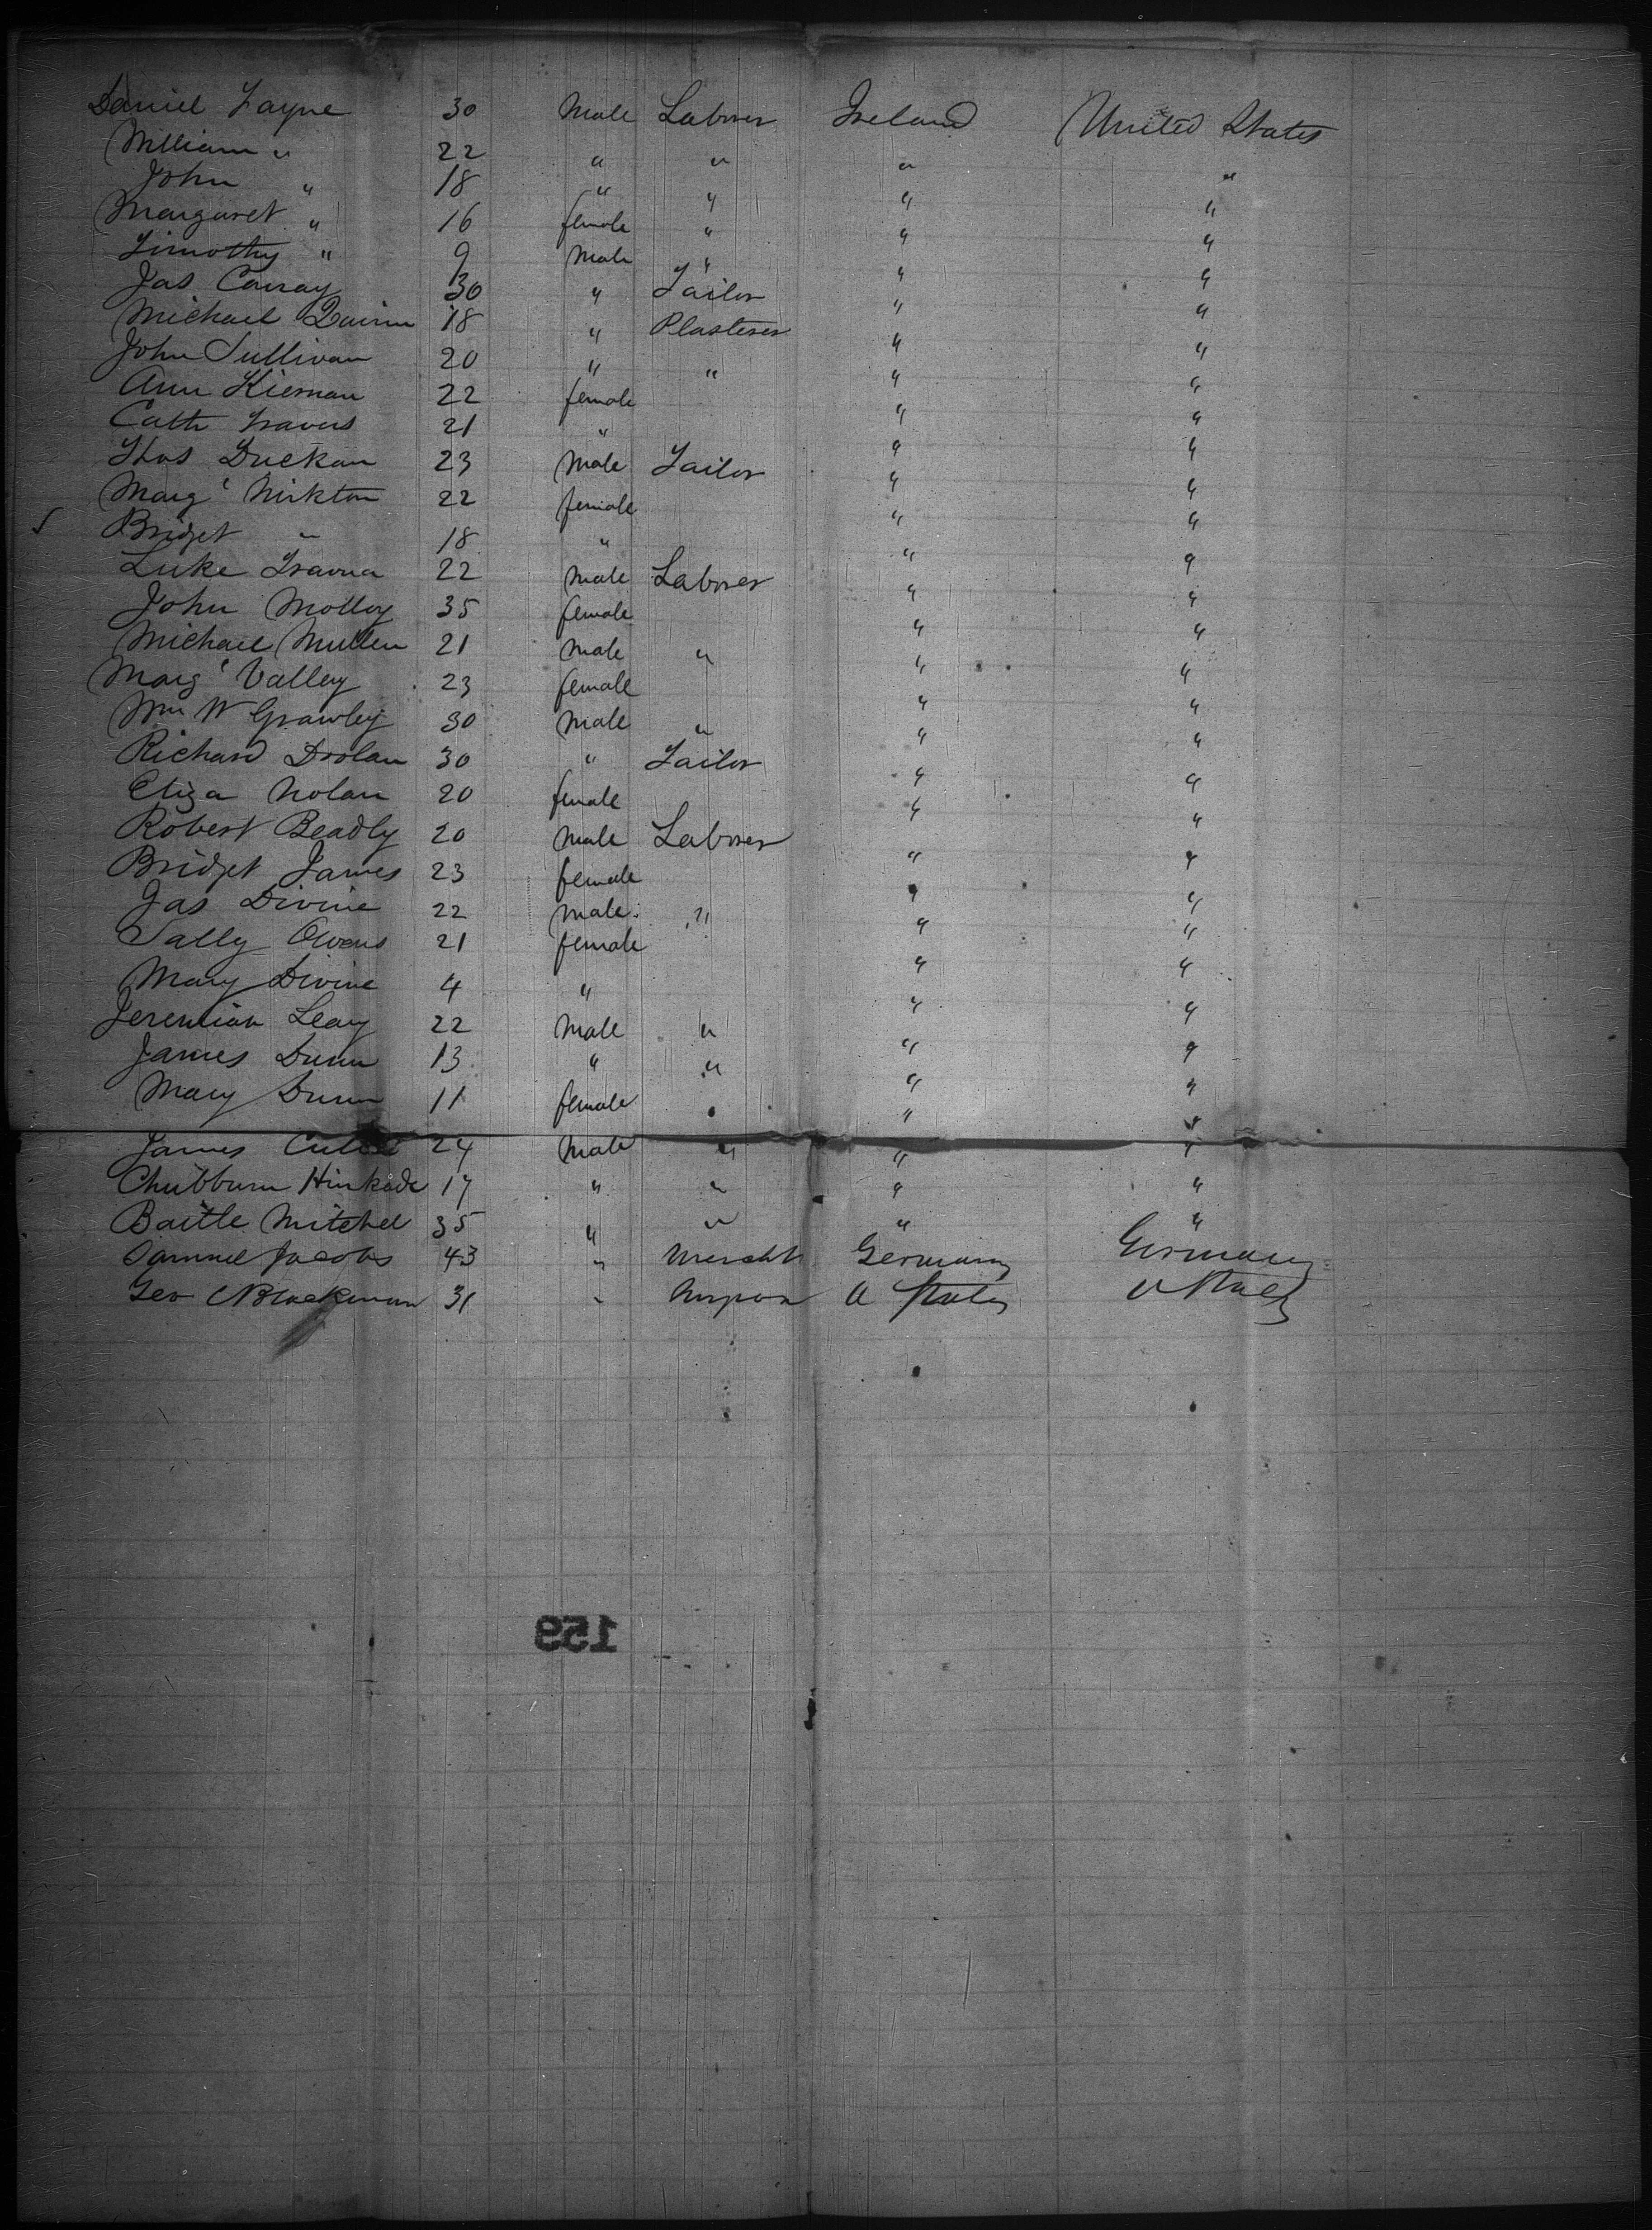 Daniel Layne 30 Male Laborer Ireland United States
William " 22 " " " "
John " 18 " " " "
Margaret " 16 female " " "
Timothy " 9 Male " " "
Jas Conray 30 " Tailor " "
Michael Quinn 18 " Plasterer " "
John Sullivan 20 " " " "
Ann Kiernan 22 female " "
Cath Travers 21 " " "
Thos Duckan 23 Male Tailor " "
Margt Nirkton 22 female " "
Bridget " 18 " " "
Luke 22 Male Laborer " "
John Molloy 35 female " "
Michael Mullen 21 Male " " "
Margt Valley 23 female " "
Wm W Grawley 30 Male " " "
Richard Doolan 30 " Tailor " "
Eliza Nolan 20 female " "
Robert Beadly 20 Male Laborer " "
Bridget James 23 female " "
Jas Divine 22 Male " " "
Sally Owens 21 female " "
Mary Divine 4 " " "
Jeremiah Leary 22 Male " " "
James Dunn 13 " " " "
Mary Dunn 11 female " "
James 24 Male " " "
Chubburn Hinkade 17 " " " "
Baitle Mitchel 35 " " " "
Samuel Jacobs 43 " Mercht Germany Germany
Geo Blackman 31 " U States U States
159